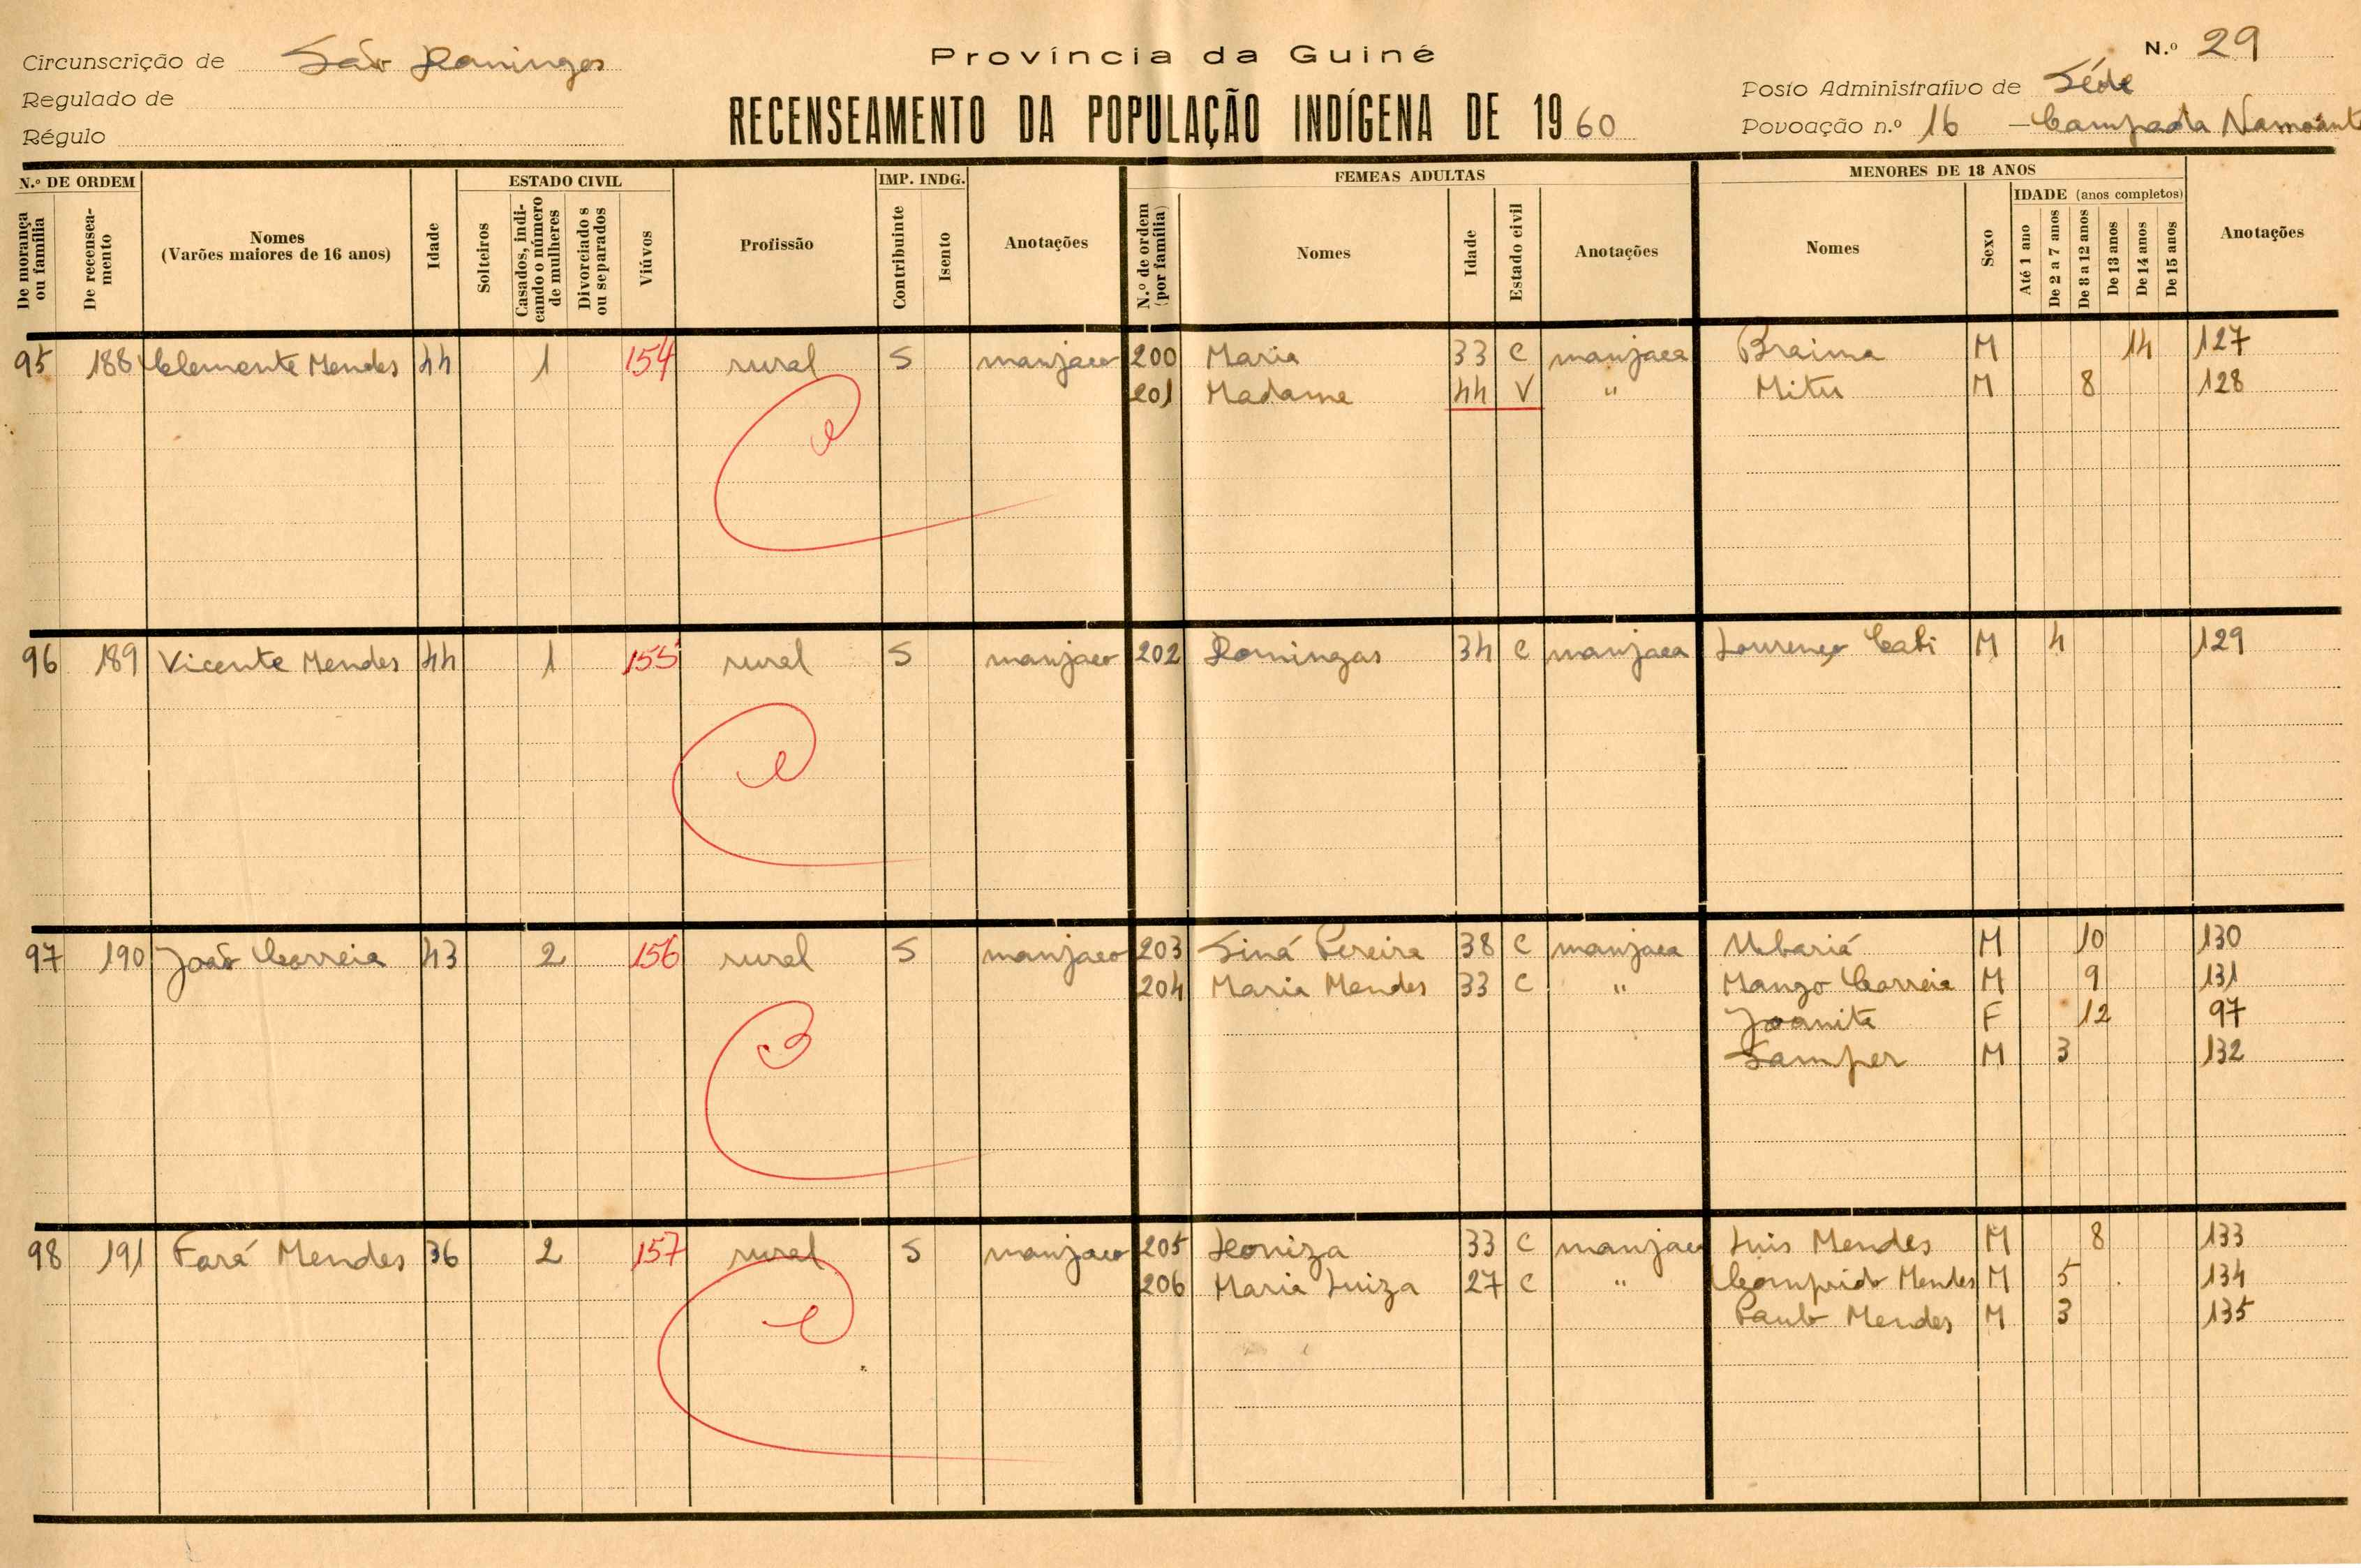 Circunscrição de São Domingos
Regulado de
Régulo
Província da Guiné
RECENSEAMENTO DA POPULAÇÃO INDÍGENA DE 1960
N.º 29
Posto Administrativo de Séde
Povoação n.º 16 — Campada
N.º DE ORDEM
De morança ou família
De recenseamento
Nomes
(Varões maiores de 16 anos)
Idade
ESTADO CIVIL
Solteiros
Casados, indicando o número de mulheres
Divorciados ou separados
Viúvos
Profissão
IMP. INDG.
Contribuinte
Isento
Anotações
FEMEAS ADULTAS
N.º de ordem (por família)
Nomes
Idade
Estado civil
Anotações
MENORES DE 18 ANOS
Nomes
Sexo
IDADE (anos completos)
Até 1 ano
De 2 a 7 anos
De 8 a 12 anos
De 13 anos
De 14 anos
De 15 anos
Anotações
95 188 Clemente Mendes 44 1 154 rural S manjaco 200 Maria 33 C manjaca Braima M 14 127
201 Madame 44 V " Mitu M 8 128
96 189 Vicente Mendes 44 1 155 rural S manjaco 202 Domingas 34 C manjaca Lourenço Cabi M 4 129
97 190 João Correia 43 2 156 rural S manjaco 203 Siná Pereira 38 C manjaca Ubariá M 10 130
204 Maria Mendes 33 C " Mango Correia M 9 131
Joanita F 12 97
Samper M 3 132
98 191 Fará Mendes 36 2 157 rural S manjaco 205 Leoniza 33 C manjaca Luis Mendes M 8 133
206 Maria Luiza 27 C " Comprido Mendes M 5 134
Paulo Mendes M 3 135